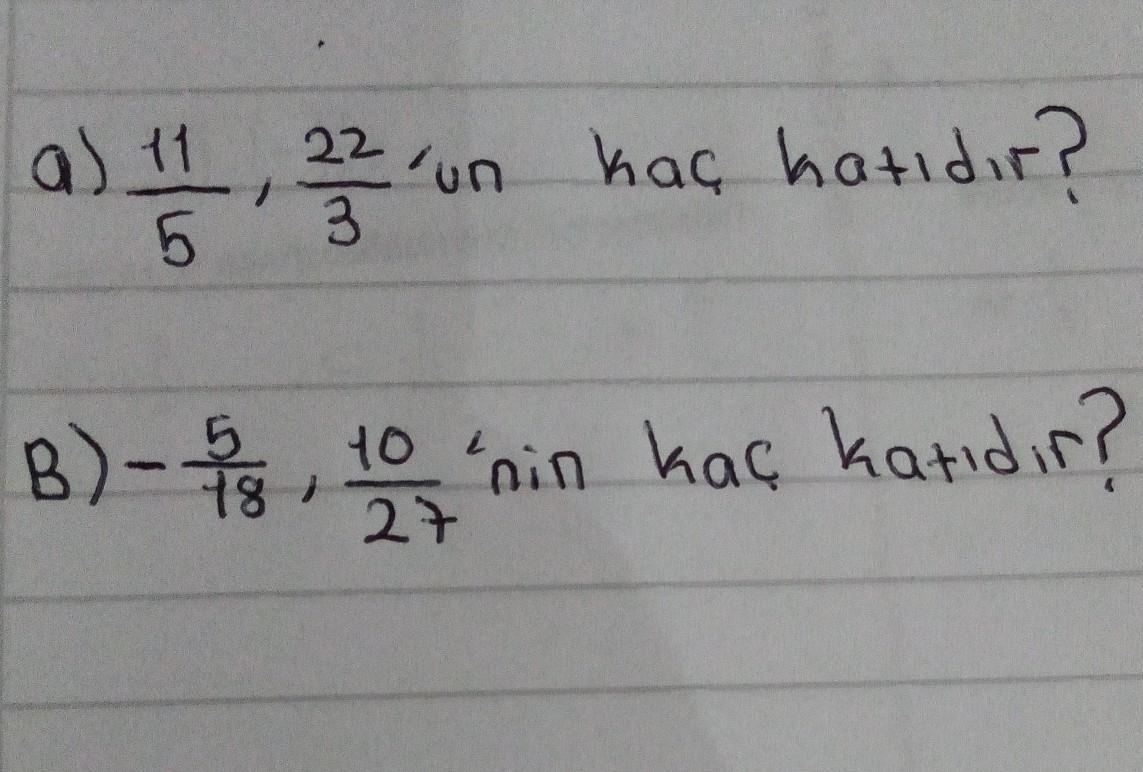 a) 11/5, 22/3 'ün kaç katıdır?
B) -5/18, 10/27 'nin kaç katıdır?